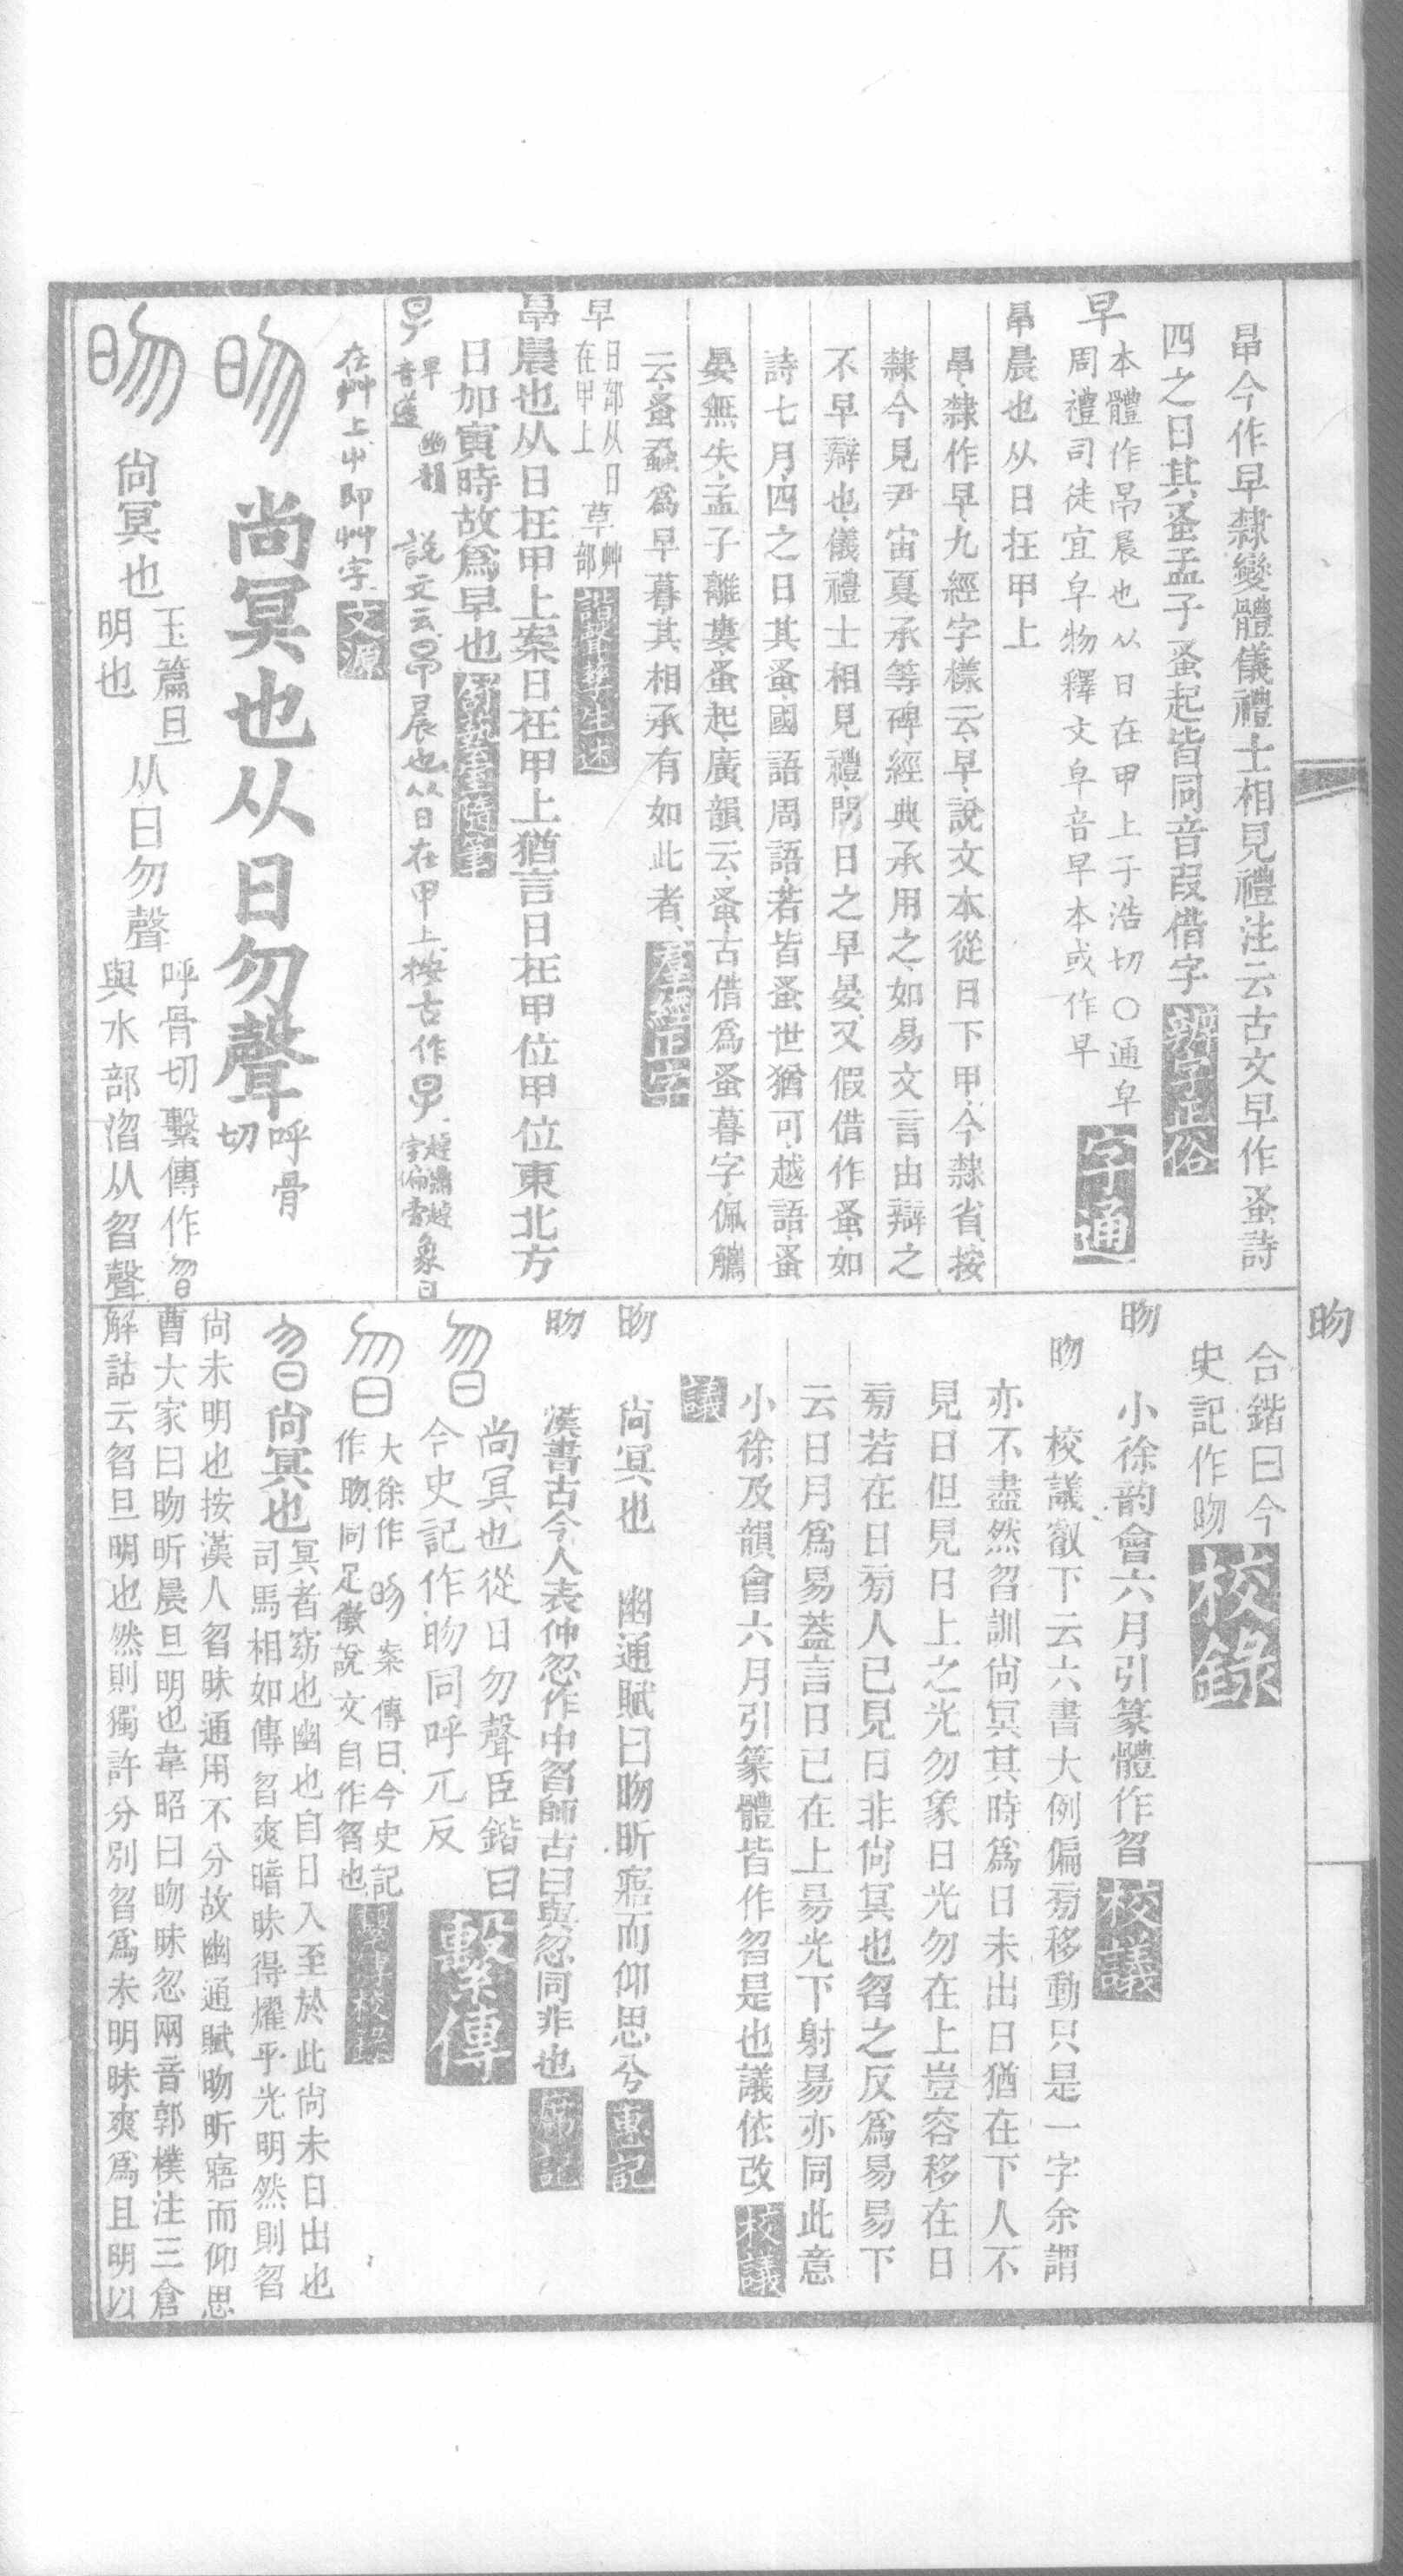 昻今作早隸變體儀禮士相見禮注云古文早作蚤詩
四之日其蚤孟子蚤起皆同音叚借字
辨字正俗
早
本體作𣅀晨也从日在甲上子浩切〇通皁
周禮司徒宜皁物釋文皁音早本或作早
字通
晨也从日在甲上
隸作早九經字樣云早說文本從日下甲今隸省按
隸今見尹宙夏承等碑經典承用之如易文言由辯之
不早辯也儀禮士相見禮問日之早晏又假借作蚤如
詩七月四之日其蚤國語周語若皆蚤世猶可越語蚤
晏無失孟子離婁蚤起廣韻云蚤古借爲蚤暮字佩觿
云蚤蝨爲早暮其相承有如此者
羣經正字
早
日部从日
在甲上
草艸部
諧聲孳生述
晨也从日在甲上案日在甲上猶言日在甲位甲位東北方
日加寅時故爲早也
早
幽韻
說文云晨也从日在甲上按古作
偏旁
象日
在艸上屮即艸字
文源
尚冥也从日勿聲
呼骨
切
尚冥也
玉篇旦
明也
从日勿聲
呼骨切繫傳作曶
與水部淴从曶聲
昒
合鍇曰今
史記作吻
校錄
昒
小徐韵會六月引篆體作曶
校議
昒
校議𣅳下云六書大例偏㫄移動只是一字余謂
亦不盡然曶訓尚冥其時爲日未出日猶在下人不
見日但見日上之光勿象日光勿在上豈容移在日
㫄若在日㫄人已見日非尚冥也曶之反爲昜昜下
云日月爲易蓋言日已在上昜光下射昜亦同此意
小徐及韻會六月引篆體皆作曶是也議依改
校議
議
昒
尚冥也
幽通賦曰昒昕寤而仰思兮
惠記
昒
漢書古今人表仲忽作中曶師古曰與忽同非也
席記
尚冥也從日勿聲臣鍇曰
今史記作昒同呼兀反
繫傳
大徐作昒案傳曰今史記
作昒同足徵說文自作曶也
繫傳校錄
尚冥也
冥者窈也幽也自日入至於此尚未日出也
司馬相如傳曶爽暗昧得燿乎光明然則曶
尚未明也按漢人曶昧通用不分故幽通賦昒昕寤而仰思
曹大家曰昒昕晨旦明也韋昭曰昒昧忽兩音郭樸注三倉
解詁云曶旦明也然則獨許分別曶爲未明昧爽爲且明以